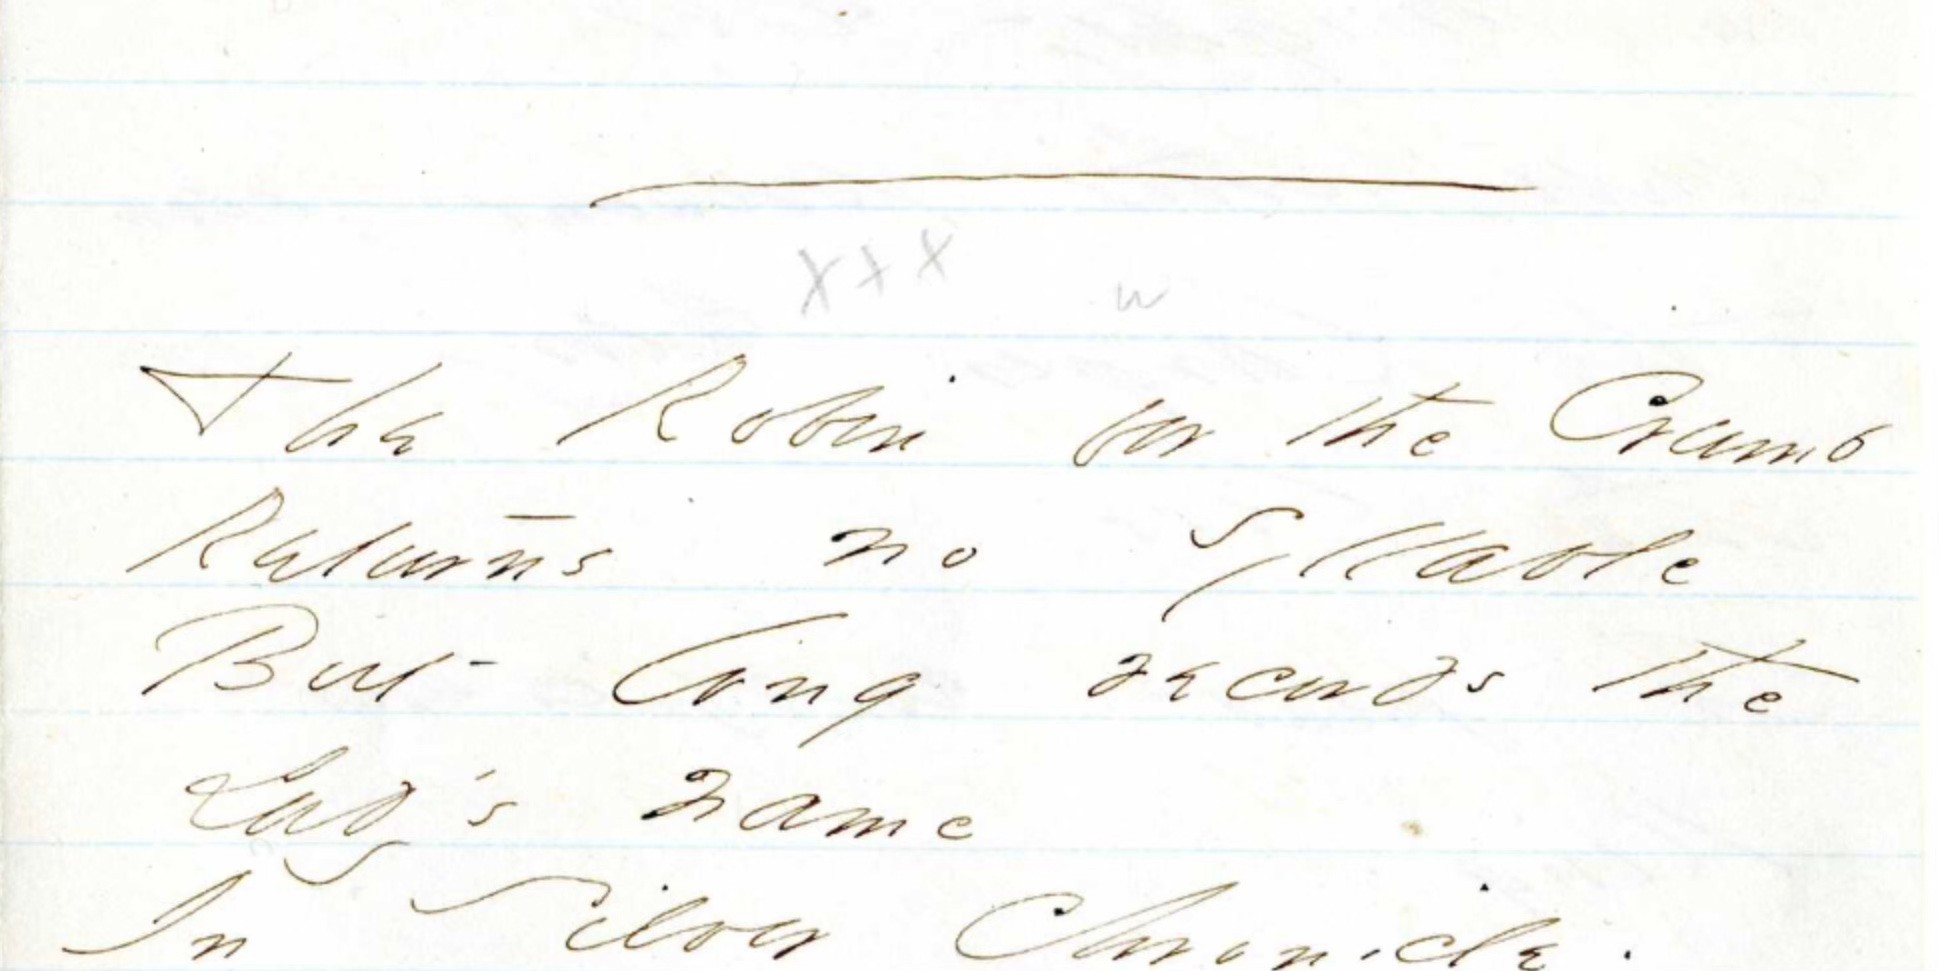 x + x
w
The Robin for the Crumb
Returns no Syllable
But long records the
Lady's name
In Silver Chronicle.